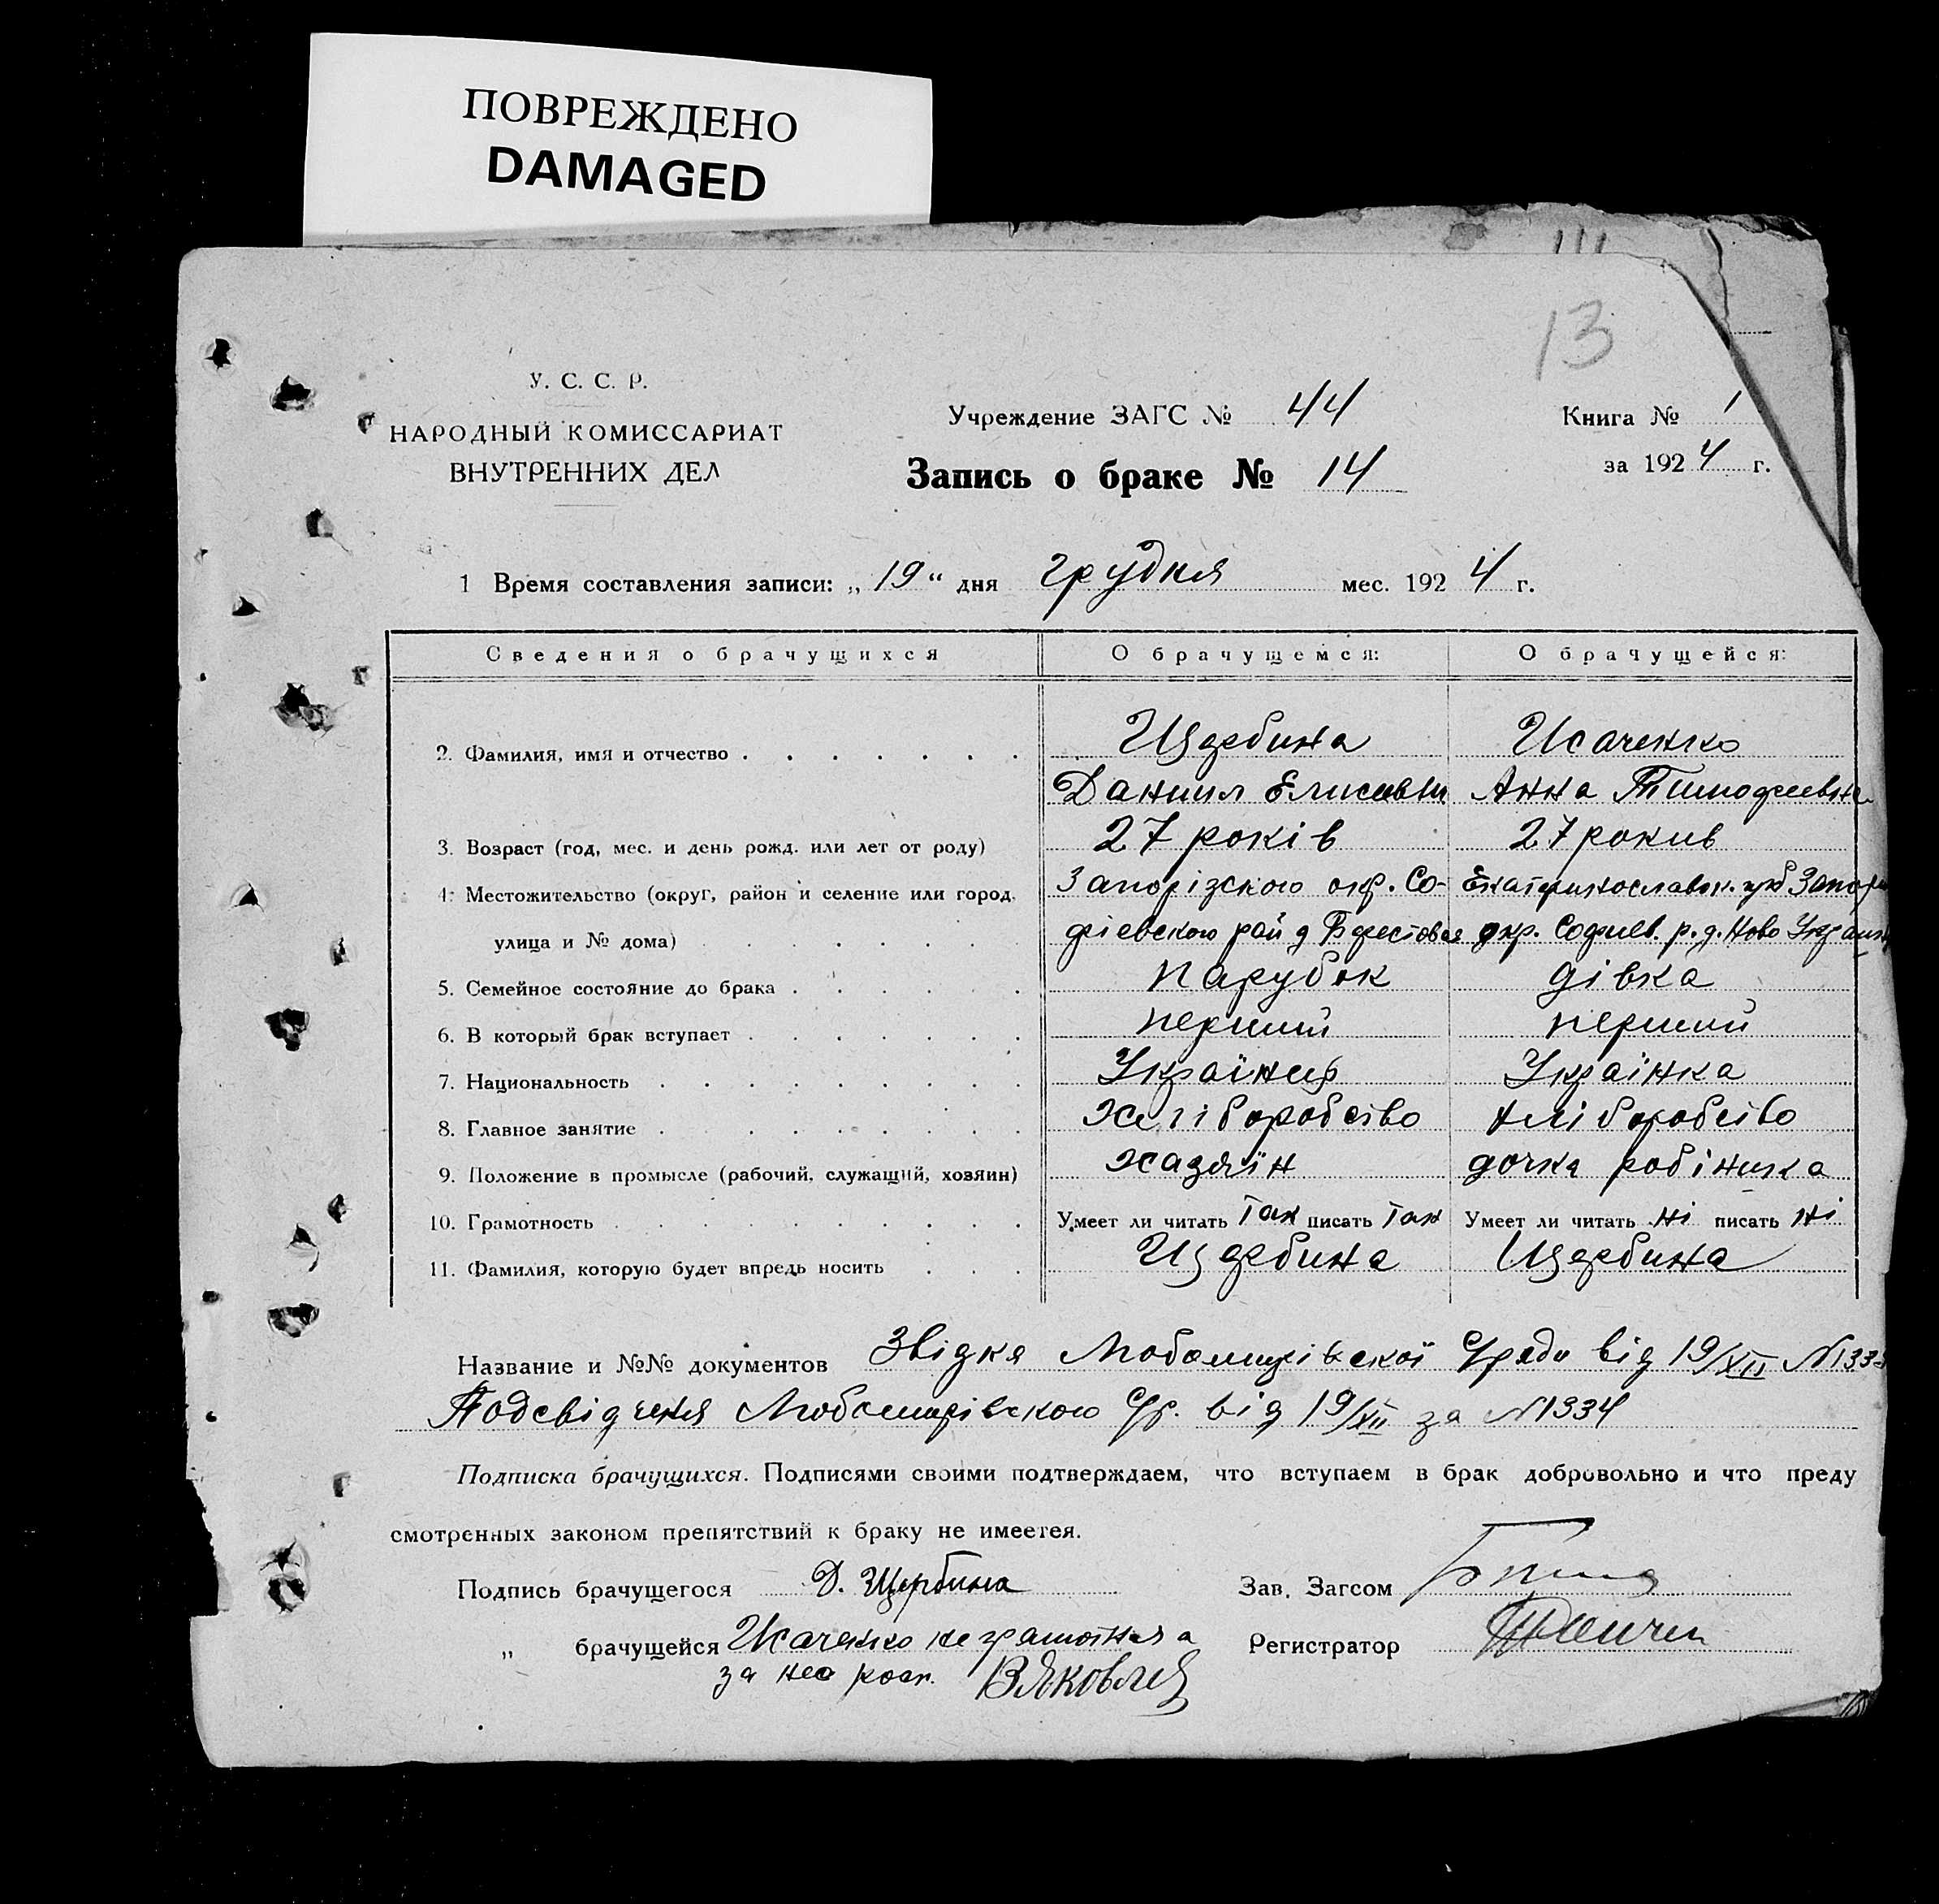 ПОВРЕЖДЕНО
DAMAGED
13
У. С. С. Р.
НАРОДНЫЙ КОМИССАРИАТ
ВНУТРЕННИХ ДЕЛ
Учреждение ЗАГС № 44
Запись о браке № 14
Книга № 1
за 1924 г.
1 Время составления записи: „19“ дня грудня мес. 1924 г.
Сведения о брачущихся О брачущемся: О брачущейся:
2. Фамилия, имя и отчество Щербина Исаченко
Даниил Елисеевич Анна Тимофеевна
3. Возраст (год, мес. и день рожд. или лет от роду) 27 років 27 рокив
4. Местожительство (округ, район и селение или город, Запорізского окр. Со- Екатеринославск. губ Запор
улица и № дома) фіевского рай д Берестовая окр. Софиев. р. д. Ново Украин
5. Семейное состояние до брака парубок дівка
6. В который брак вступает перший перший
7. Национальность Українець Українка
8. Главное занятие Хліборобство хліборобство
9. Положение в промысле (рабочий, служащий, хозяин) хазяїн дочка робіника
10. Грамотность Умеет ли читать Так писать Так Умеет ли читать ні писать ні
11. Фамилия, которую будет впредь носить Щербина Щербина
Название и №№ документов Звідка Любомирівской С/ради від 19/XII N 133
Посвідченя Любомирівского С/р. від 19/XII за N 1334
Подписка брачущихся. Подписями своими подтверждаем, что вступаем в брак добровольно и что преду
смотренных законом препятствий к браку не имеется.
Подпись брачущегося Д. Щербина Зав. Загсом
„ брачущейся Исаченко неграмотная а Регистратор
за нео росп. В Яковлев